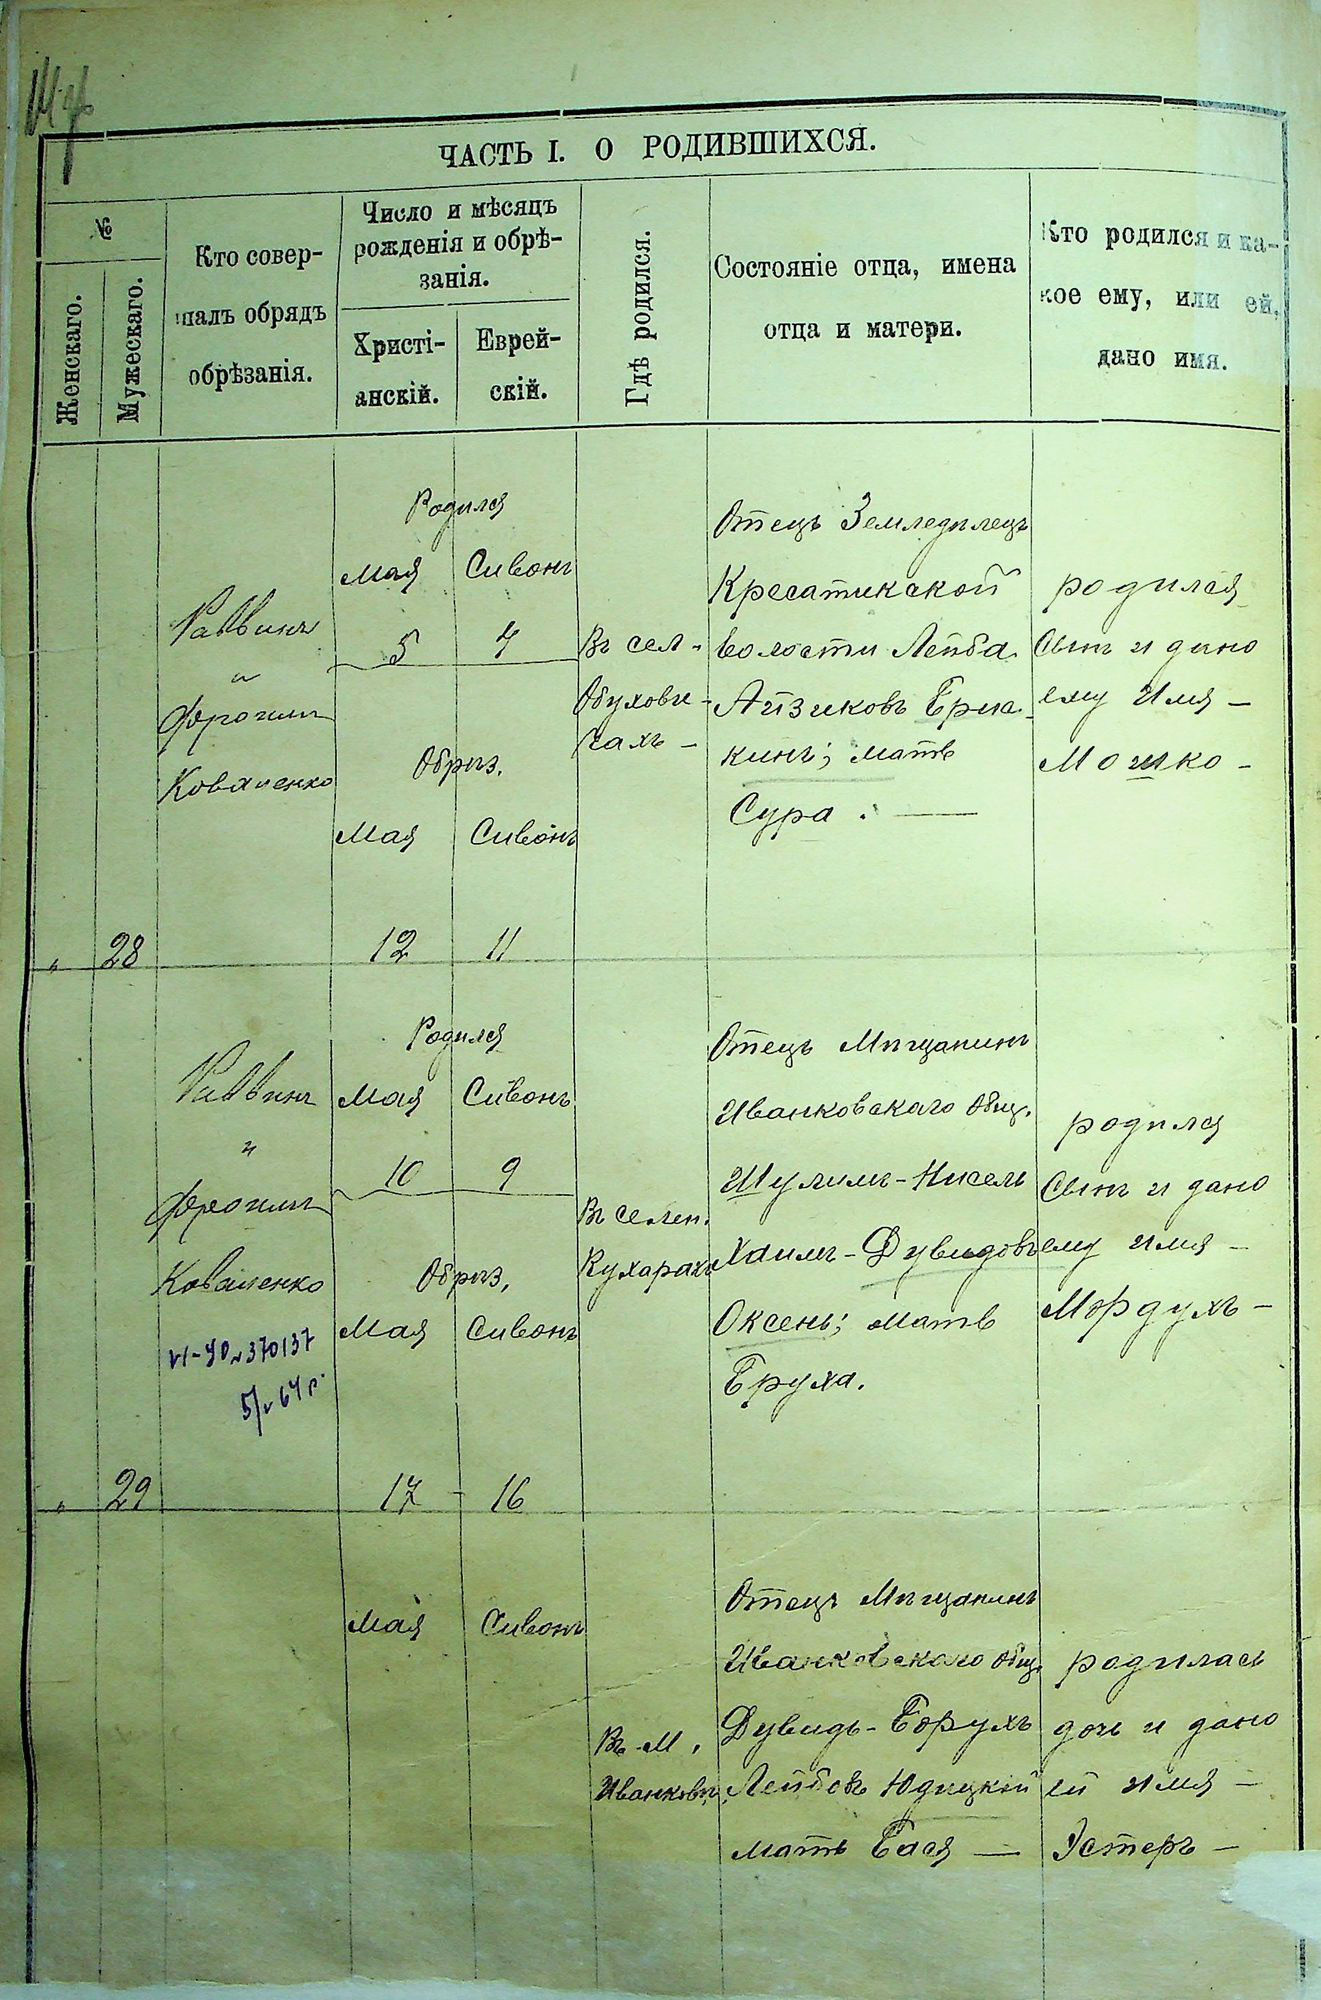 ЧАСТЬ I. О РОДИВШИХСЯ.
№
Женскаго.
Мужескаго.
Кто совер-
шалъ обрядъ
обрѣзанія.
Число и мѣсяцъ
рожденія и обрѣ-
занія.
Христі-
анскій.
Еврей-
скій.
Гдѣ родился.
Состояніе отца, имена
отца и матери.
Кто родился и ка-
кое ему, или ей,
дано имя.
„ 28
Раввинъ
и
Фроимъ
Коваленко
Родился
Мая Сивонъ
5 4
Обрѣз.
Мая Сивонъ
12 11
Въ сел.
Обухови-
чахъ –
Отецъ Земледѣлецъ
Кресатикской
волости Лейба
Айзиковъ
кинъ; мать
Сура. —
родился
Сынъ и дано
ему Имя –
Мошко –
„ 29
Раввинъ
и
Фроимъ
Коваленко
370137
64 г.
Родился
Мая Сивонъ
10 9
Обрѣз.
Мая Сивонъ
17 16
Въ селен.
Кухарахъ
Отецъ Мѣщанинъ
Иванковскаго Общ.
Шулимъ-Нисель
Хаимъ-Дувидовъ
Оксень; мать
Бруха.
родился
Сынъ и дано
ему имя –
Мордухъ –
Мая Сивонъ
Въ М.
Иванковѣ
Отецъ Мѣщанинъ
Иванковскаго Общ.
Дувидъ-Борухъ
Лейбовъ Юдицкій
мать Бася —
родилась
дочь и дано
ей имя –
Эстеръ –